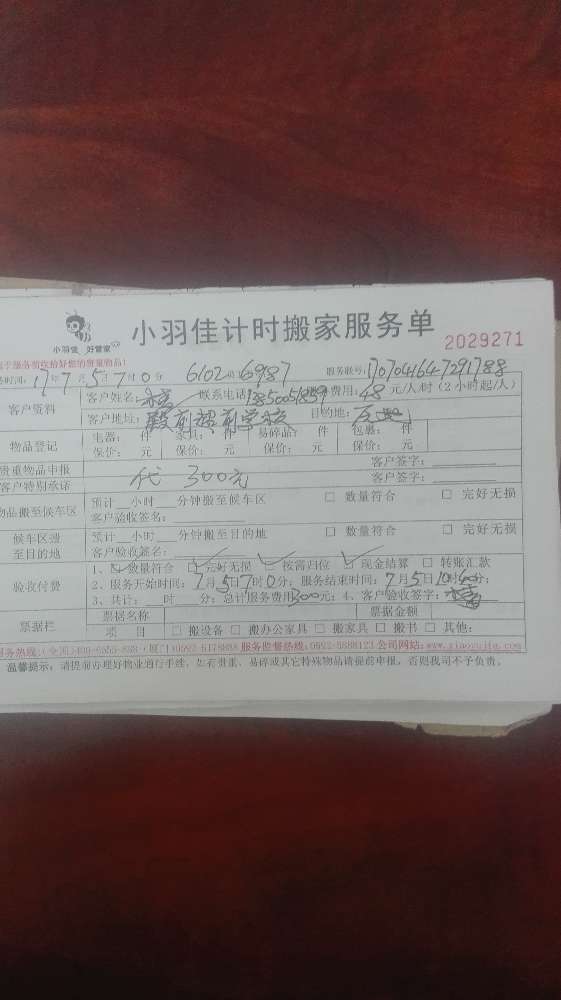 小羽佳 好管家
小羽佳计时搬家服务单
2029271
时间: 17年7月5日7时0分 6102 6987 服务账号: 1707041647291788
客户资料
客户姓名: 联系电话 费用: 48 元/人/时 (2小时起/人)
客户地址: 殿前 学校 目的地:
物品登记
电器: 件 家具: 件 易碎品: 件 包裹: 件
保价: 元 保价: 元 保价: 元 保价: 元
贵重物品申报 代 300元 客户签字:
客户特别承诺 客户签字:
物品搬至候车区
预计__小时____分钟搬至候车区 □ 数量符合 □ 完好无损
客户验收签名:
候车区搬至目的地
预计__小时____分钟搬至目的地 □ 数量符合 □ 完好无损
客户验收签名:
验收付费
1、☑数量符合 ☑完好无损 ☑按需归位 ☑现金结算 □ 转账汇款
2、服务开始时间: 7月5日7时0分; 服务结束时间: 7月5日10时40分;
3、共计: __时____分; 总计服务费用300元; 4、客户验收签字:
票据栏
票据名称 票据金额
项 目 □ 搬设备 □ 搬办公家具 □ 搬家具 □ 搬书 □ 其他:
务热线: (全国)400-6555-888 (厦门)0592-5178888 服务监督热线: 0592-5888123 公司网站: www.xiaoyujia.com
温馨提示: 请提前办理好物业放行手续, 如有贵重、易碎或其它特殊物品请提前申报, 否则我司不予负责。